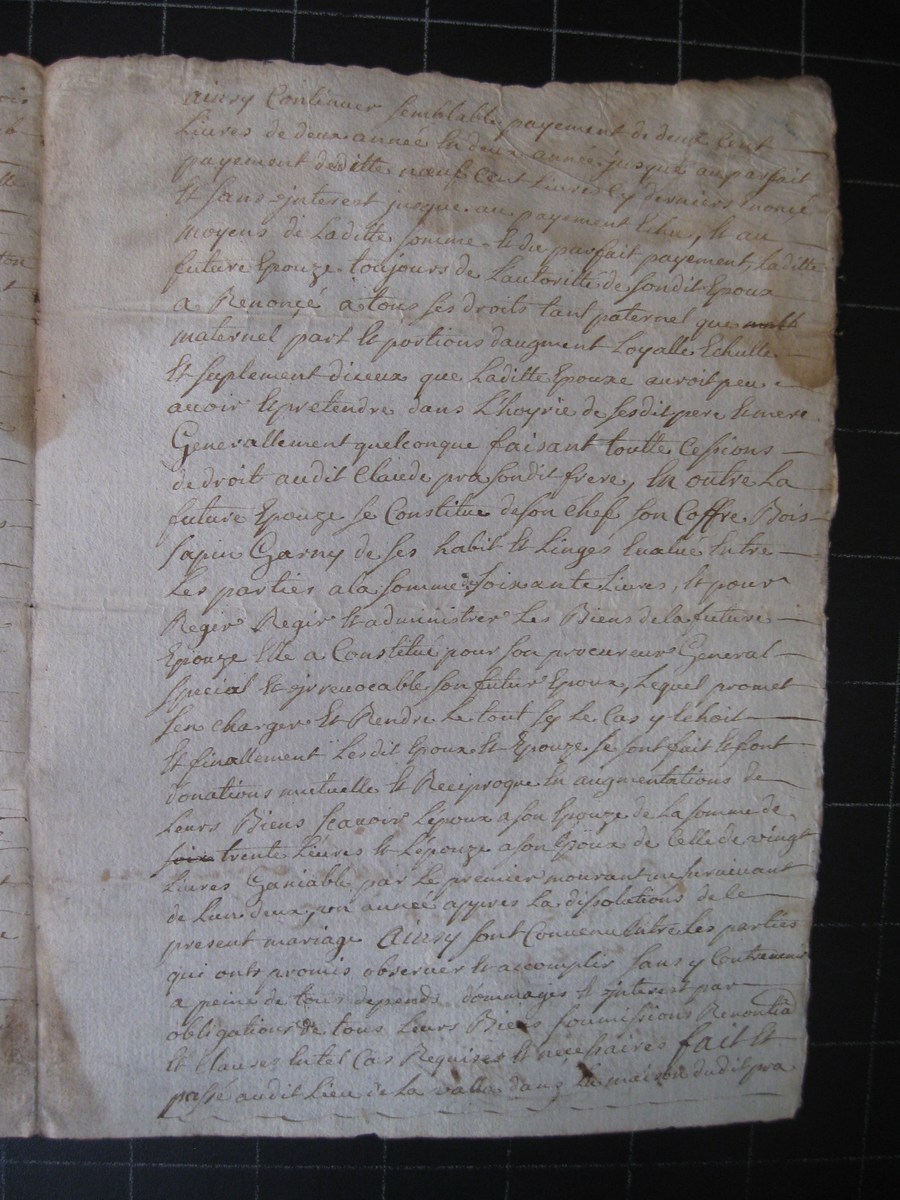 ainsy Continuer semblable payement de deux Cent
Livres de deux année En deux année jusque au parfait
payement de ditte nœuf Cent Livre Cy derniers Enoncé
Et sans jnterest jusque au payement Echu, Et au
moyens de Laditte somme Et du parfait payement, Laditte
future Epouze toujours de Lautoritté de sondit Epoux
a Renoncé à tous ses droits tant paternel que
maternel part Et portions daugment Loyalle Echutte
Et suplement diceux que Laditte Epouze auroit peu
auoir Et pretendre dans L'hoyrie de sesdit pere Et mere
Generallement quelconque faisant toutte Cessions
de droit audit Claude pra sondit frere, En outre La
future Epouze se Constitue de son chéf son Coffre Bois
sapin Garny de ses habit Et Linges Eualué Entre
Les parties a la somme soixante Liures, Et pour
Regir Regir Et administrer Les Biens de la future
Epouze Elle a Constitué pour son procureur General
special Et jrreuocable son futur Epoux, Lequel promet
sen charger Et Rendre Le tout sy Le Cas y Echoit
Et finallement Lesdit Epoux Et Epouze se sont fait Et font
donations mutuelle Et Reciproque En augmentations de
Leurs Biens scauoir L'epoux a son Epouze de La somme de
soix trente Liures Et L'epouze a son Epoux de Celle de vingt
Liures Ganiable par Le premier mourant au suruiuant
de Leur deux, un année appres La dissolutions de Le
present mariage Ainsy sont Conuenu Entre Les parties
qui onts promis obseruer Et accomplir sans y Contreuenir
a peine de tous depends dommages Et jnterest par
obligations de tous Leurs Biens soumissions Renontia
Et Clauses Entel Cas Requises Et nécessaires fait Et
passé audit Lieu de La valla dans La maison dudit pra